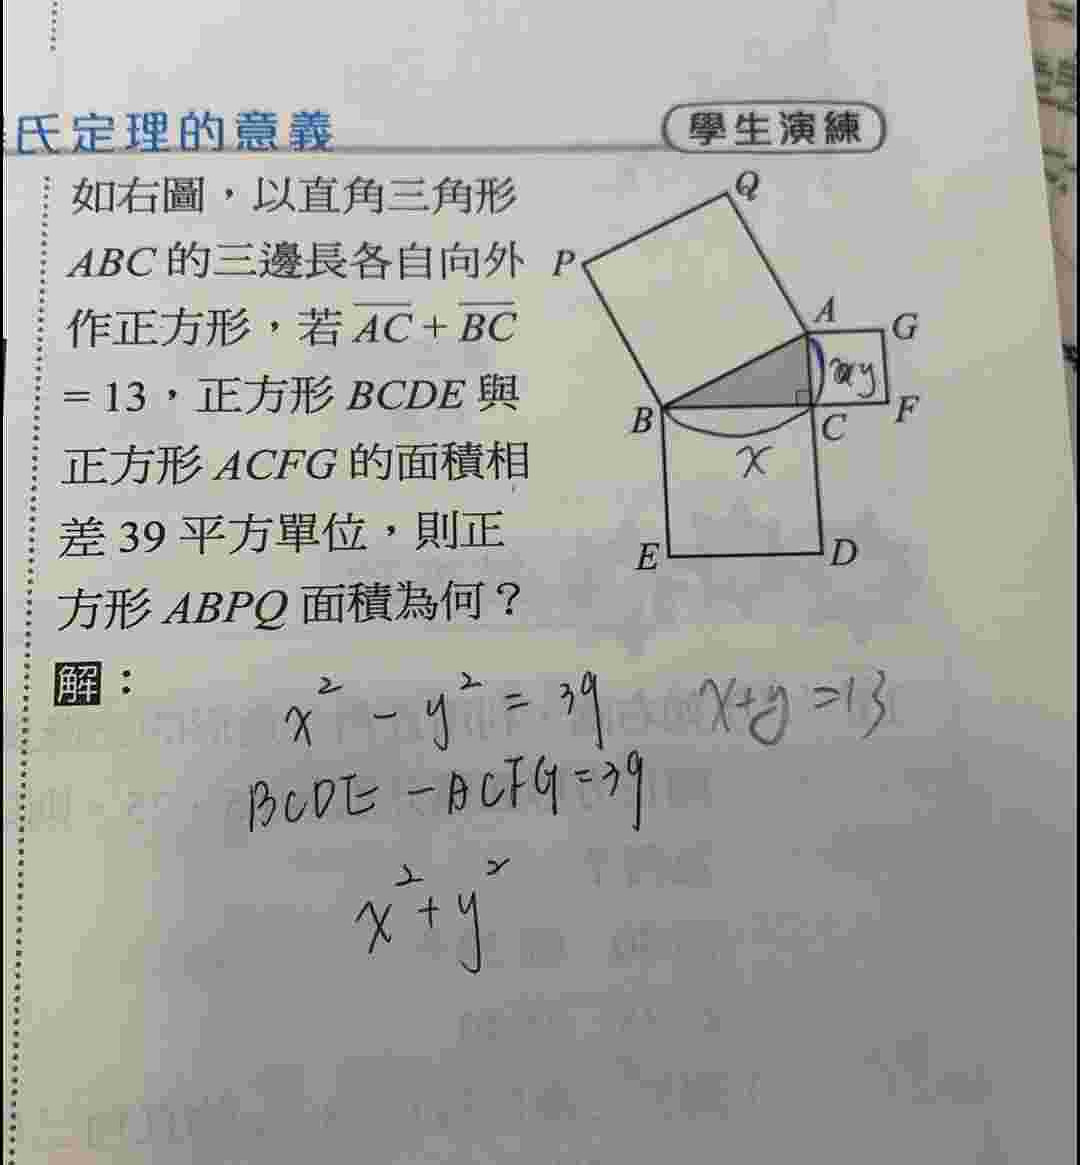 氏定理的意義
學生演練
如右圖，以直角三角形
ABC 的三邊長各自向外
作正方形，若 \overline{AC} + \overline{BC}
= 13，正方形 BCDE 與
正方形 ACFG 的面積相
差 39 平方單位，則正
方形 ABPQ 面積為何？
Q
P
A
G
y
B
C
F
x
E
D
解：
x² - y² = 39 x+y=13
BCDE - ACFG = 39
x² + y²